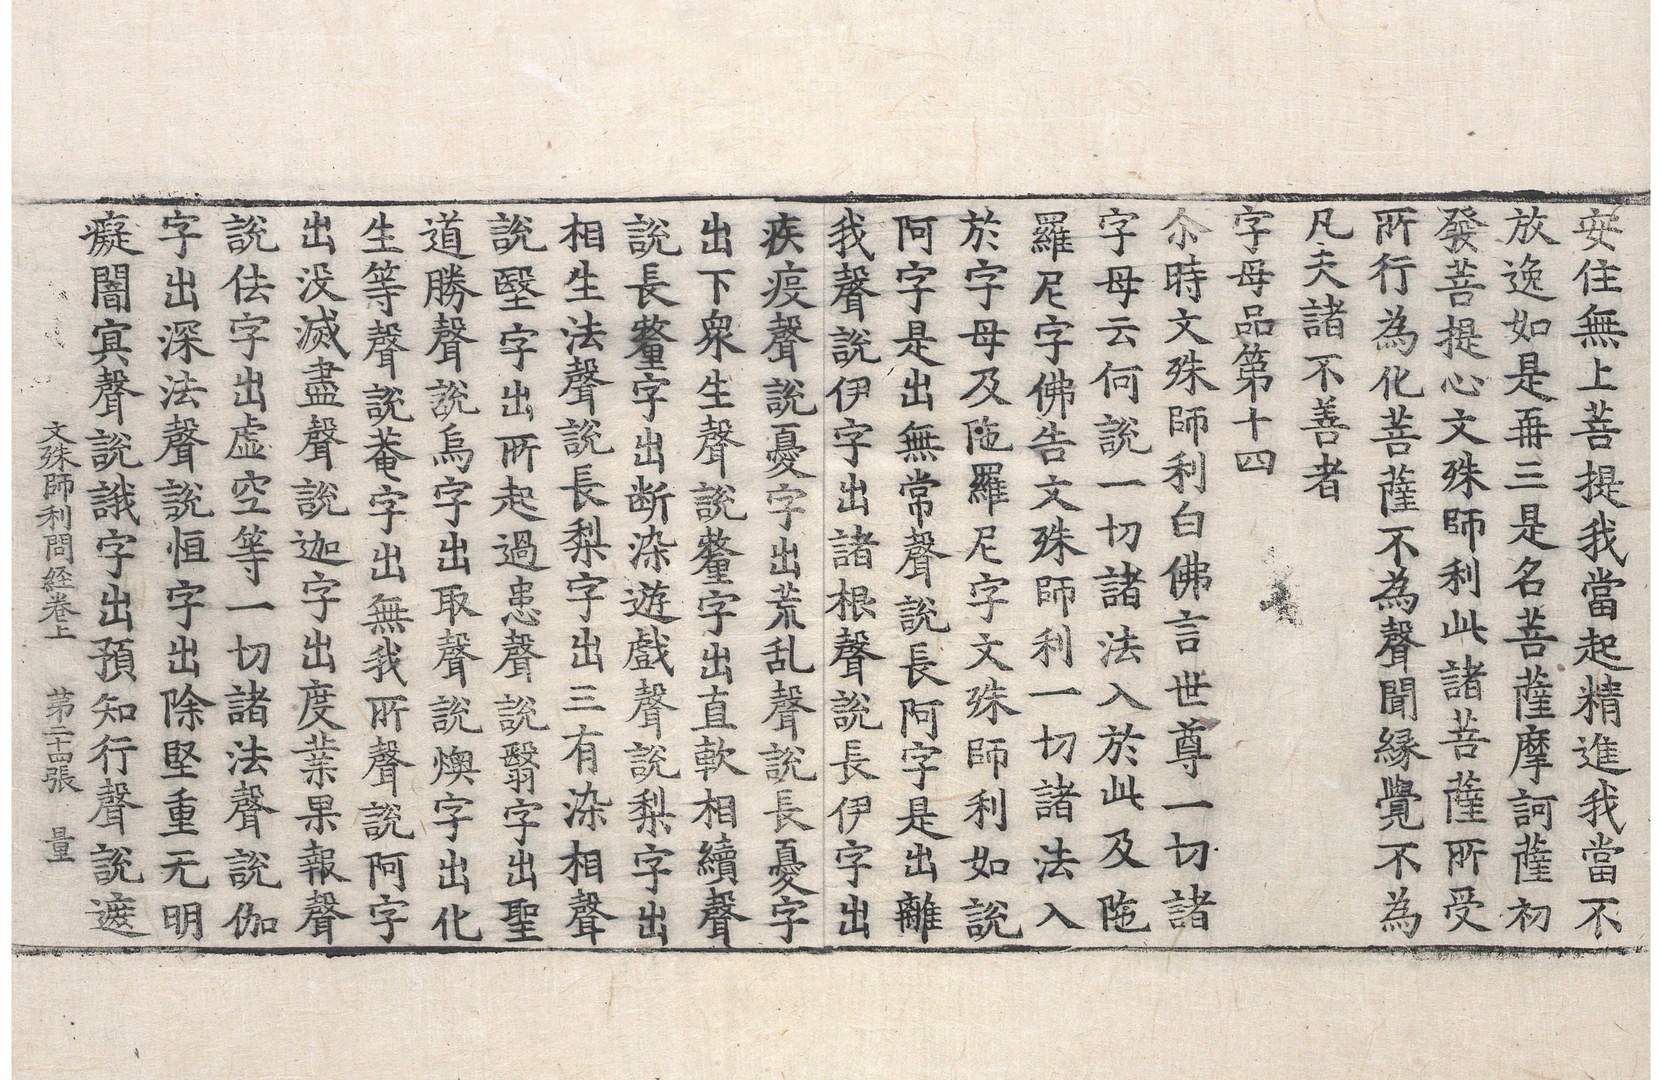 安住無上菩提我當起精進我當不
放逸如是再三是名菩薩摩訶薩初
發菩提心文殊師利此諸菩薩所受
所行為化菩薩不為聲聞緣覺不為
凡夫諸不善者
字母品第十四
尒時文殊師利白佛言世尊一切諸
字母云何說一切諸法入於此及陁
羅尼字佛告文殊師利一切諸法入
於字母及陁羅尼字文殊師利如說
阿字是出無常聲說長阿字是出離
我聲說伊字出諸根聲說長伊字出
疾疫聲說憂字出荒乱聲說長憂字
出下衆生聲說釐字出直軟相續聲
說長釐字出断染遊戲聲說梨字出
相生法聲說長梨字出三有染相聲
說堅字出所起過患聲說翳字出聖
道勝聲說烏字出取聲說燠字出化
生等聲說菴字出無我所聲說阿字
出没滅盡聲說迦字出度業果報聲
說佉字出虛空等一切諸法聲說伽
字出深法聲說恒字出除堅重无明
癡闇冥聲說誐字出預知行聲說遮
文殊師利問経卷上 第二十四張 量